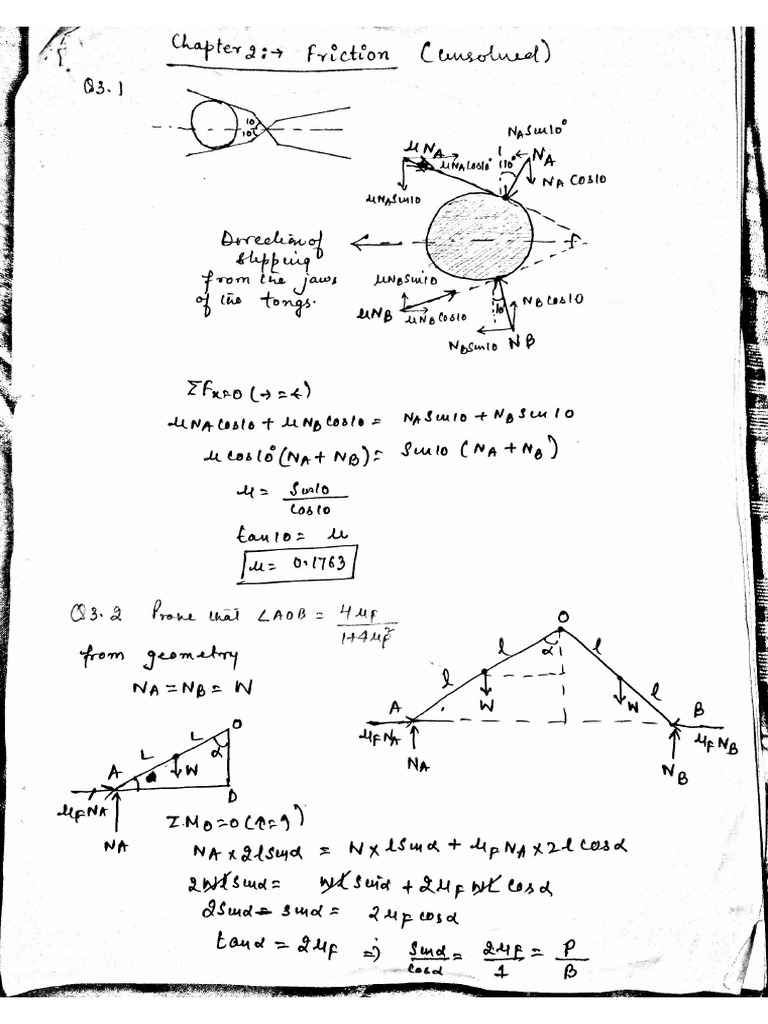 Chapter 2:→ Friction (Unsolved)
Q3.1
10
10
NA Sin10°
μNA
μNA cos10°
10°
NA
NA cos10
μNA Sin10
Direction of
slipping
from the jaws
of the tongs.
μNB Sin10
μNB
μNB cos10
10
NB cos10
NB Sin10
NB
ΣFx=0 (→=←)
μNA cos10 + μNB cos10 = NA Sin10 + NB Sin10
μ cos10° (NA + NB) = Sin10 (NA + NB)
μ = Sin10 / cos10
tan10 = μ
μ = 0.1763
Q3.2 Prove that ∠AOB = 4μF / 1+4μF²
from geometry
NA = NB = W
O
α
l
l
l
l
W
W
A
B
μF NA
μF NB
NA
NB
O
L
α
L
W
A
D
μF NA
NA
ΣM0=0 (↻=↺)
NA × 2l Sinα = W × l Sinα + μF NA × 2l cosα
2Wl Sinα = Wl Sinα + 2μF Wl cosα
2Sinα - Sinα = 2μF cosα
tanα = 2μF ⇒ Sinα / cosα = 2μF / 1 = P / B